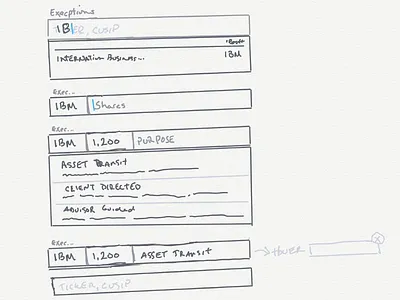 Exceptions
IB ER, CUSIP
INTERNATION BUSINESS... IBM
Exec...
IBM Shares
Exec...
IBM 1,200 PURPOSE
ASSET TRANSIT
CLIENT DIRECTED
ADVISOR GUIDED
Exec...
IBM 1,200 ASSET TRANSIT HOVER X
TICKER, CUSIP